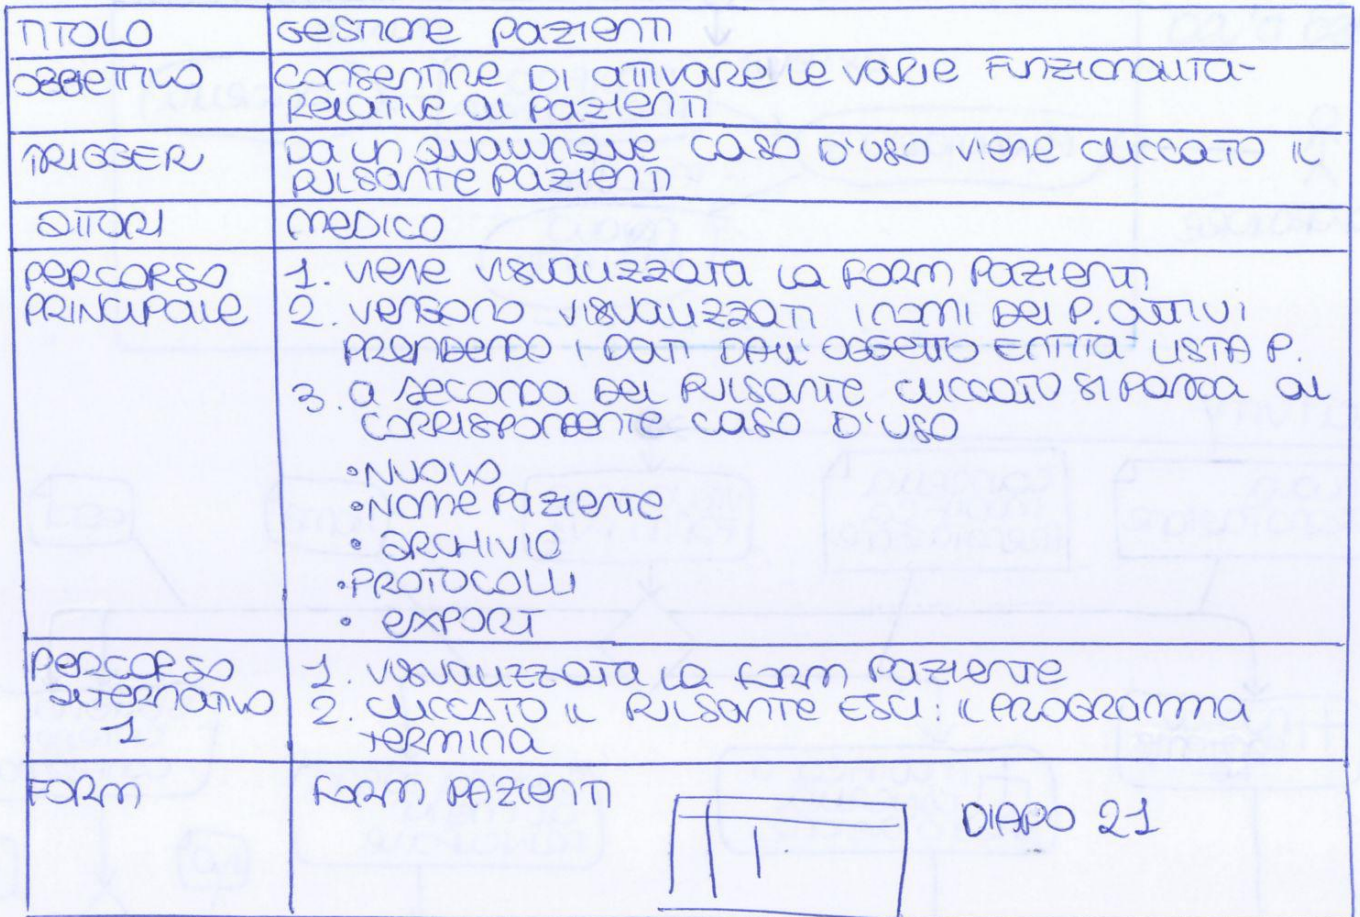 TITOLO GESTIONE PAZIENTI
OBBIETTIVO CONSENTIRE DI ATTIVARE LE VARIE FUNZIONALITA'
RELATIVE AI PAZIENTI
TRIGGER DA UN QUALUNQUE CASO D'USO VIENE CLICCATO IL
PULSANTE PAZIENTI
ATTORI MEDICO
PERCORSO PRINCIPALE
1. VIENE VISUALIZZATA LA FORM PAZIENTI
2. VENGONO VISUALIZZATI I NOMI DEI P. ATTIVI
PRENDENDO I DATI DALL'OGGETTO ENTITA' LISTA P.
3. A SECONDA DEL PULSANTE CLICCATO SI PASSA AL
CORRISPONDENTE CASO D'USO
• NUOVO
• NOME PAZIENTE
• ARCHIVIO
• PROTOCOLLI
• EXPORT
PERCORSO
ALTERNATIVO
1
1. VISUALIZZATA LA FORM PAZIENTE
2. CLICCATO IL PULSANTE ESCI: IL PROGRAMMA
TERMINA
FORM FORM PAZIENTI
DIAPO 21